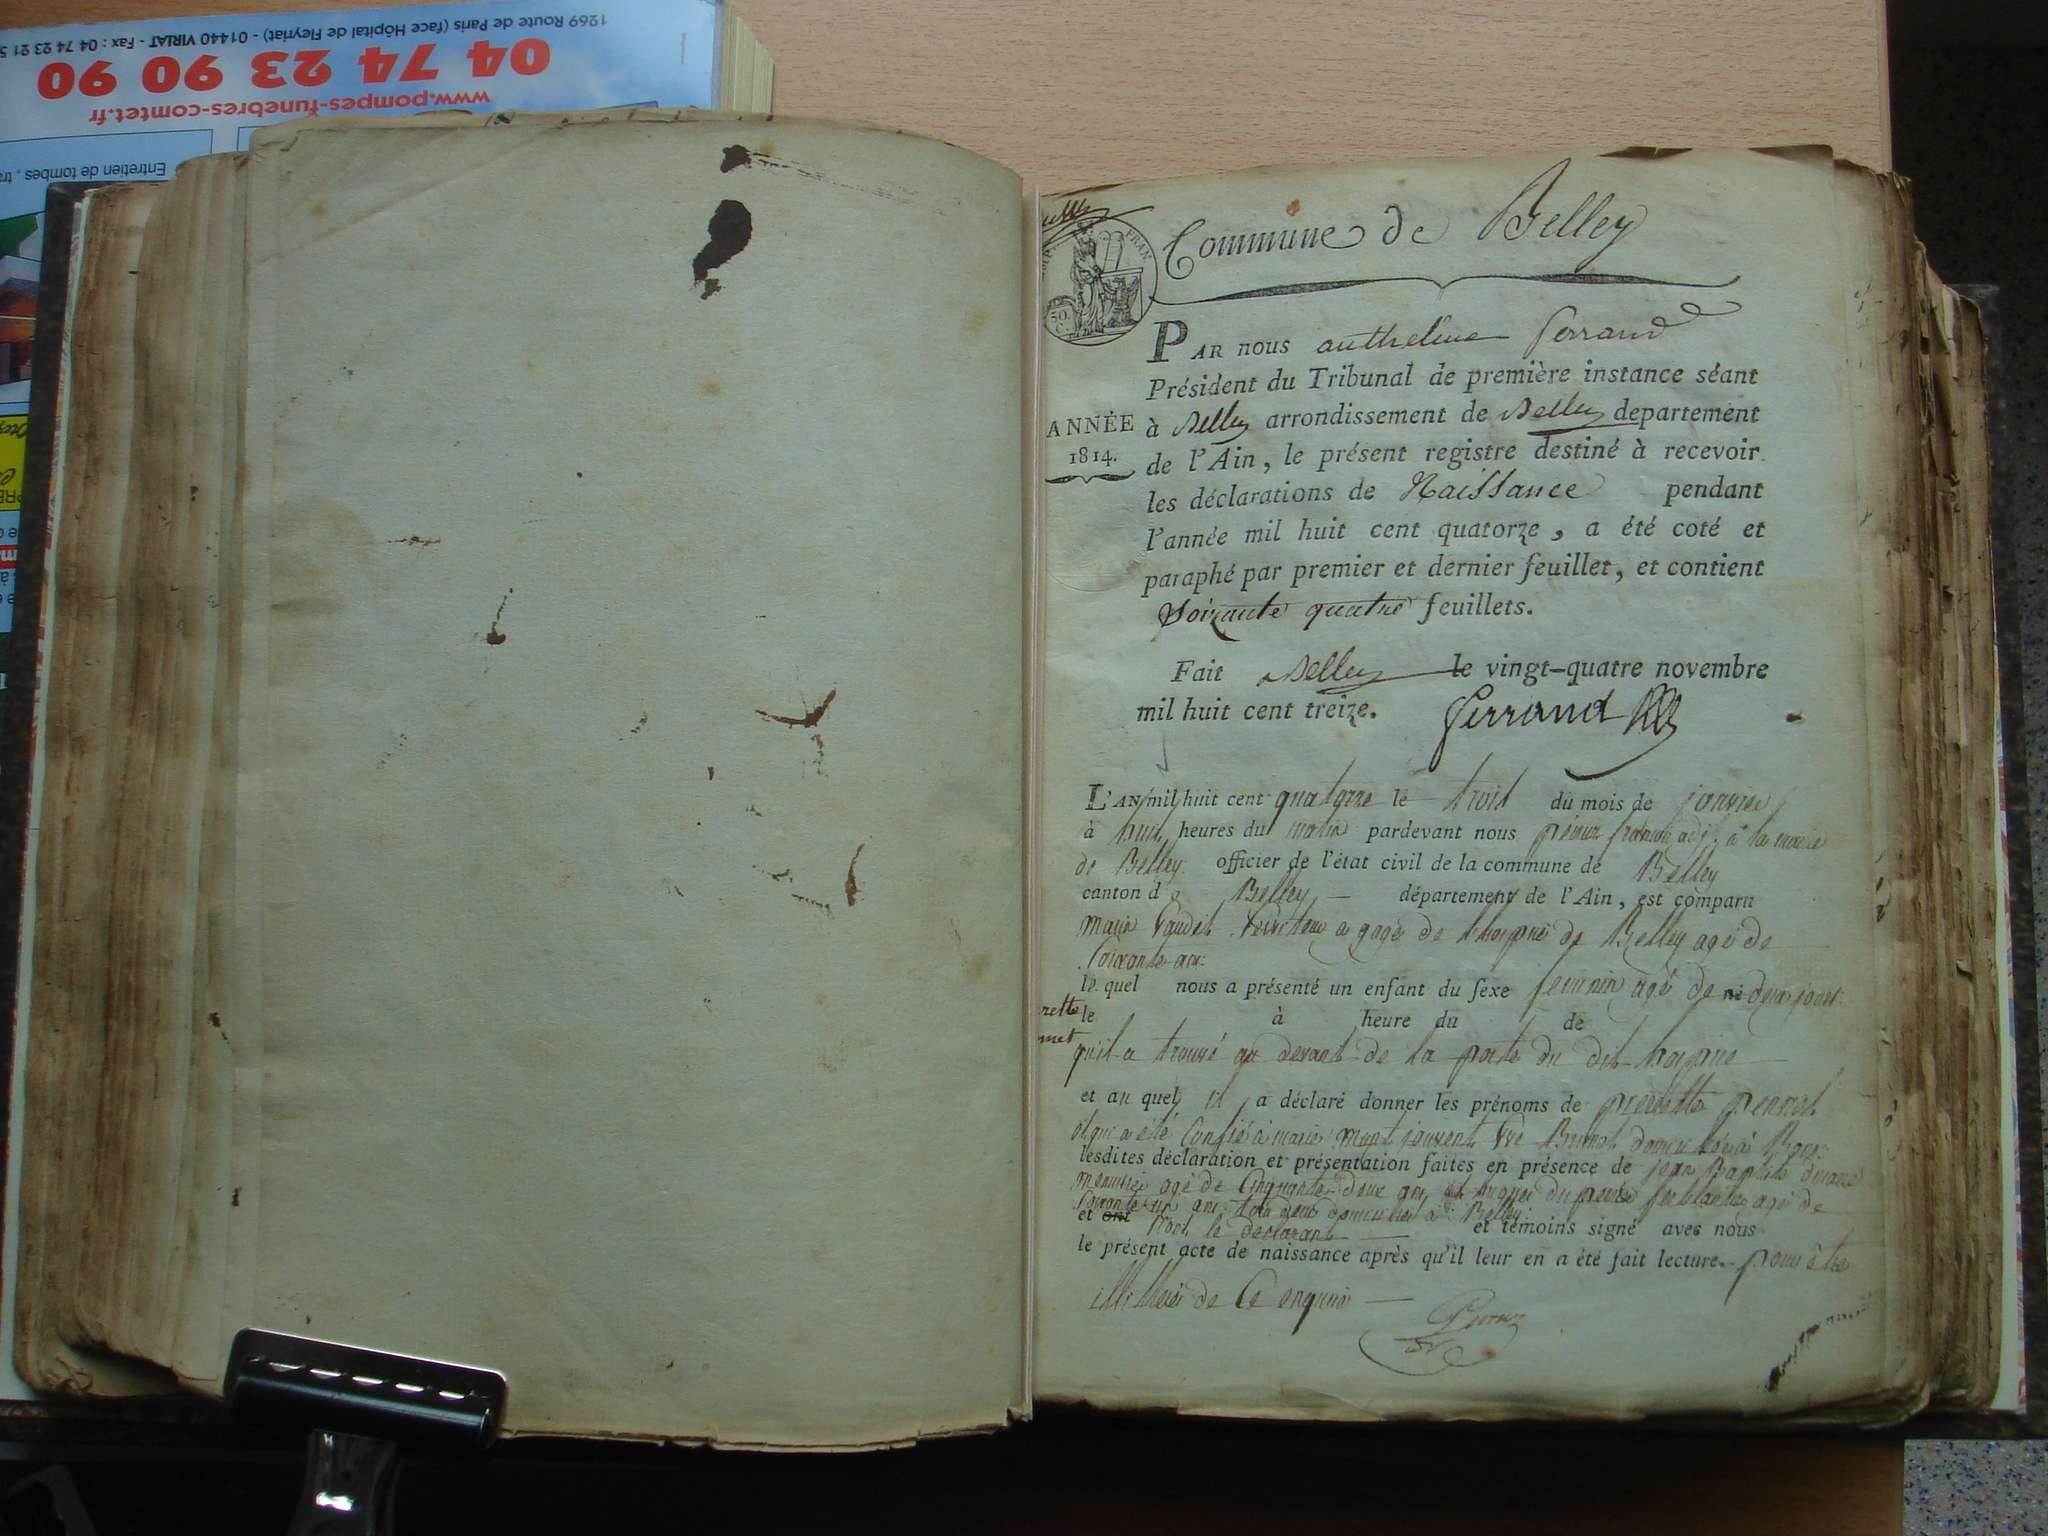 1269 Route de Paris (face Hôpital de Fleyriat) - 01440 VIRIAT - Fax : 04 74 23 21 5
04 74 23 90 90
www.pompes-funebres-comtet.fr
Entretien de tombes, tra
Commune de Belley
FRAN
50.
C.
PAR nous anthelme ferrand
Président du Tribunal de première instance séant
ANNÉE
1814.
à Belley arrondissement de Belley departement
de l'Ain, le présent registre destiné à recevoir
les déclarations de Naissance pendant
l'année mil huit cent quatorze, a été coté et
paraphé par premier et dernier feuillet, et contient
Soixante quatre feuillets.
Fait à Belley le vingt-quatre novembre
mil huit cent treize. ferrand
L'AN mil huit cent quatorze le trois du mois de janvier
à huit heures du matin pardevant nous adj. à la mairie
de Belley officier de l'état civil de la commune de Belley
canton de Belley département de l'Ain, est comparu
Marie à gage de l'hospice de Belley agé de
Soixante ans
lequel nous a présenté un enfant du sexe feminin agé de né deux jours
rette
met
le à heure du de
qu'il a trouvé au devant de la porte du dit hospice
et au quel il a déclaré donner les prénoms de
et qui a été Confié à marie montjouvent Vve Brunet
lesdites déclaration et présentation faites en présence de jean Baptiste
menuisier agé de Cinquante deux ans et agé de
Soixante un ans tous deux domiciliés à Belley
et ont le declarant et témoins signé avec nous
le présent acte de naissance après qu'il leur en a été fait lecture. pour être
de Ce enquis